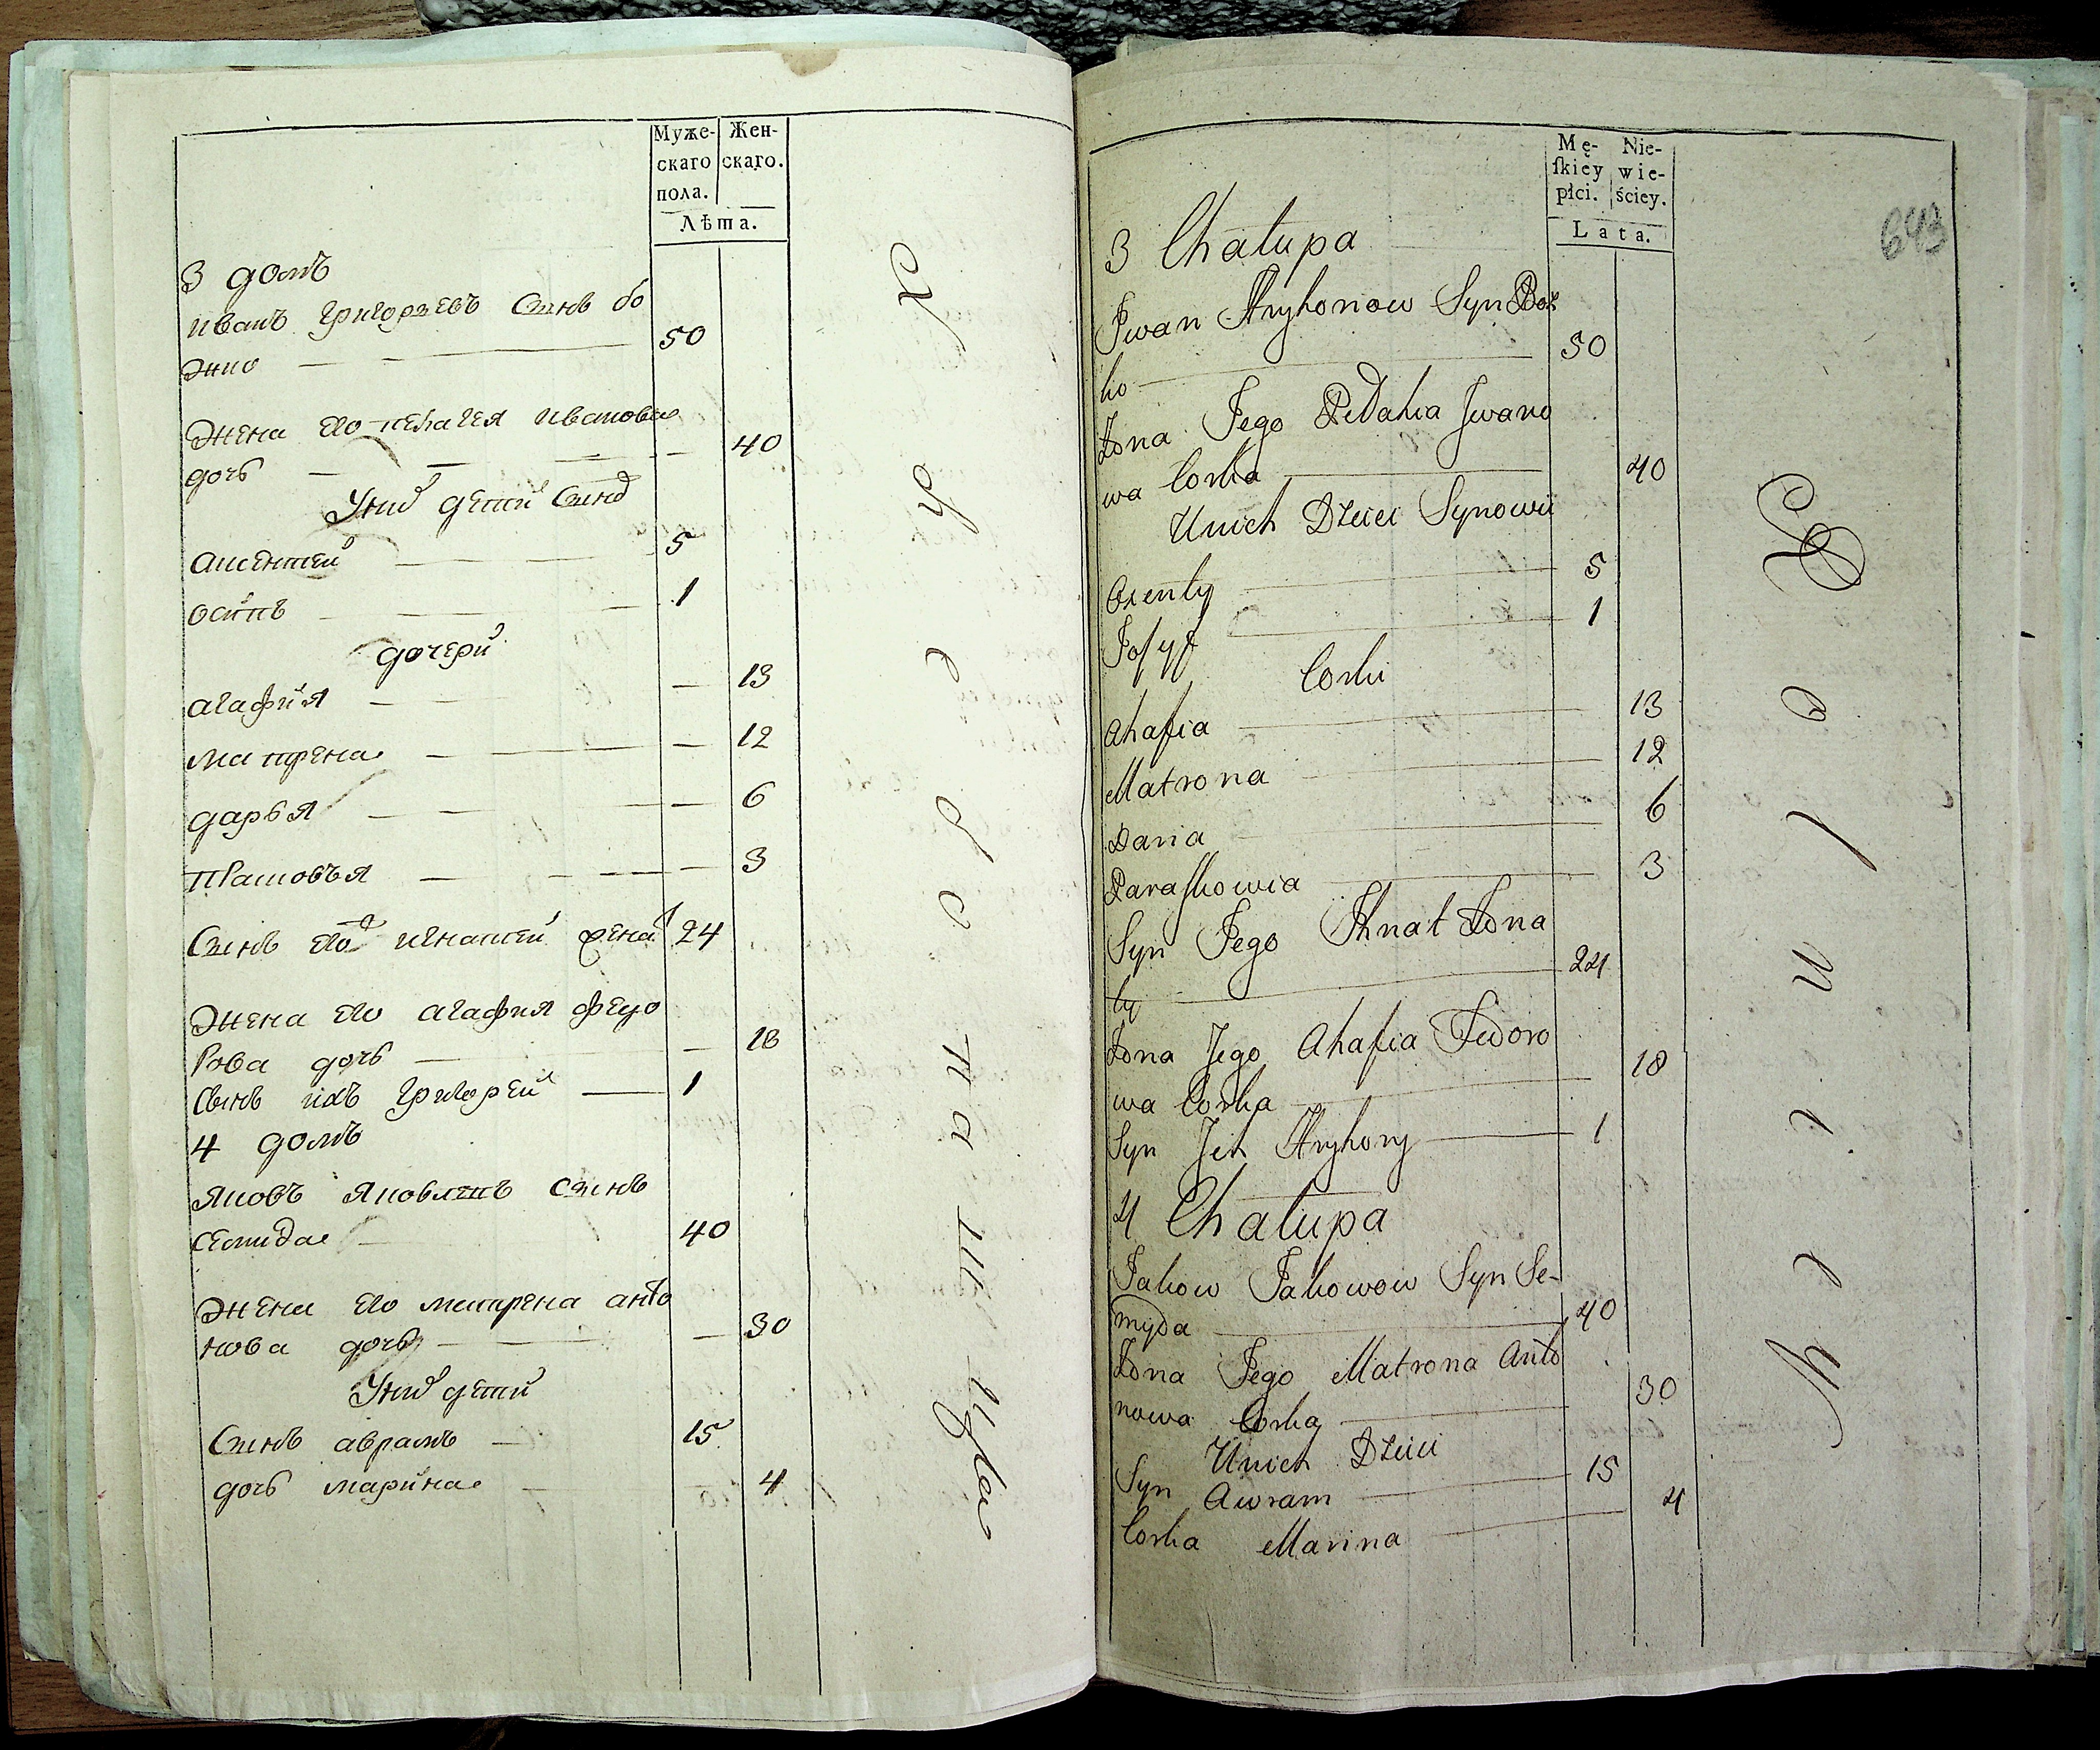 Муже-
скаго
пола.
Жен-
скаго.
Лѣта.
3 домъ
иванъ григорьевъ Сынъ бо
жко
50
жена его пелагея иванова
дочь
40
У них дети Сынов
аксентей
5
осипъ
1
дочери
агафия
13
матрена
12
дарья
6
3
Сынъ его игнатей женат
24
жена его агафия федо
рова дочь
18
Сынъ ихъ григорей
1
4 домъ
яковъ яковлевъ Сынъ
семида
40
жена его матрена анто
нова дочь
30
У них дети
Сынъ аврамъ
15
дочь марина
4
643
Mę-
ſkiey
płci.
Nie-
wie-
ściey.
Lata.
3 Chałupa
Jwan Hryhorow Syn Boż
ko
50
Żona Jego Pelahia Jwano
wa Corka
40
Unich Dzieci Synowii
Axenty
5
Josyf
1
Corki
Ahafia
13
Matrona
12
Daria
6
Paraskowia
3
Syn Jego Ihnat Żona
ty
24
Żona Jego Ahafia Fedoro
wa Corka
18
Syn Jch Hryhory
1
4 Chałupa
Jakow Jakowow Syn Se-
myda
40
Żona Jego Matrona Anto
nowa Corka
30
Unich Dzieci
Syn Awram
15
Corka Marina
4